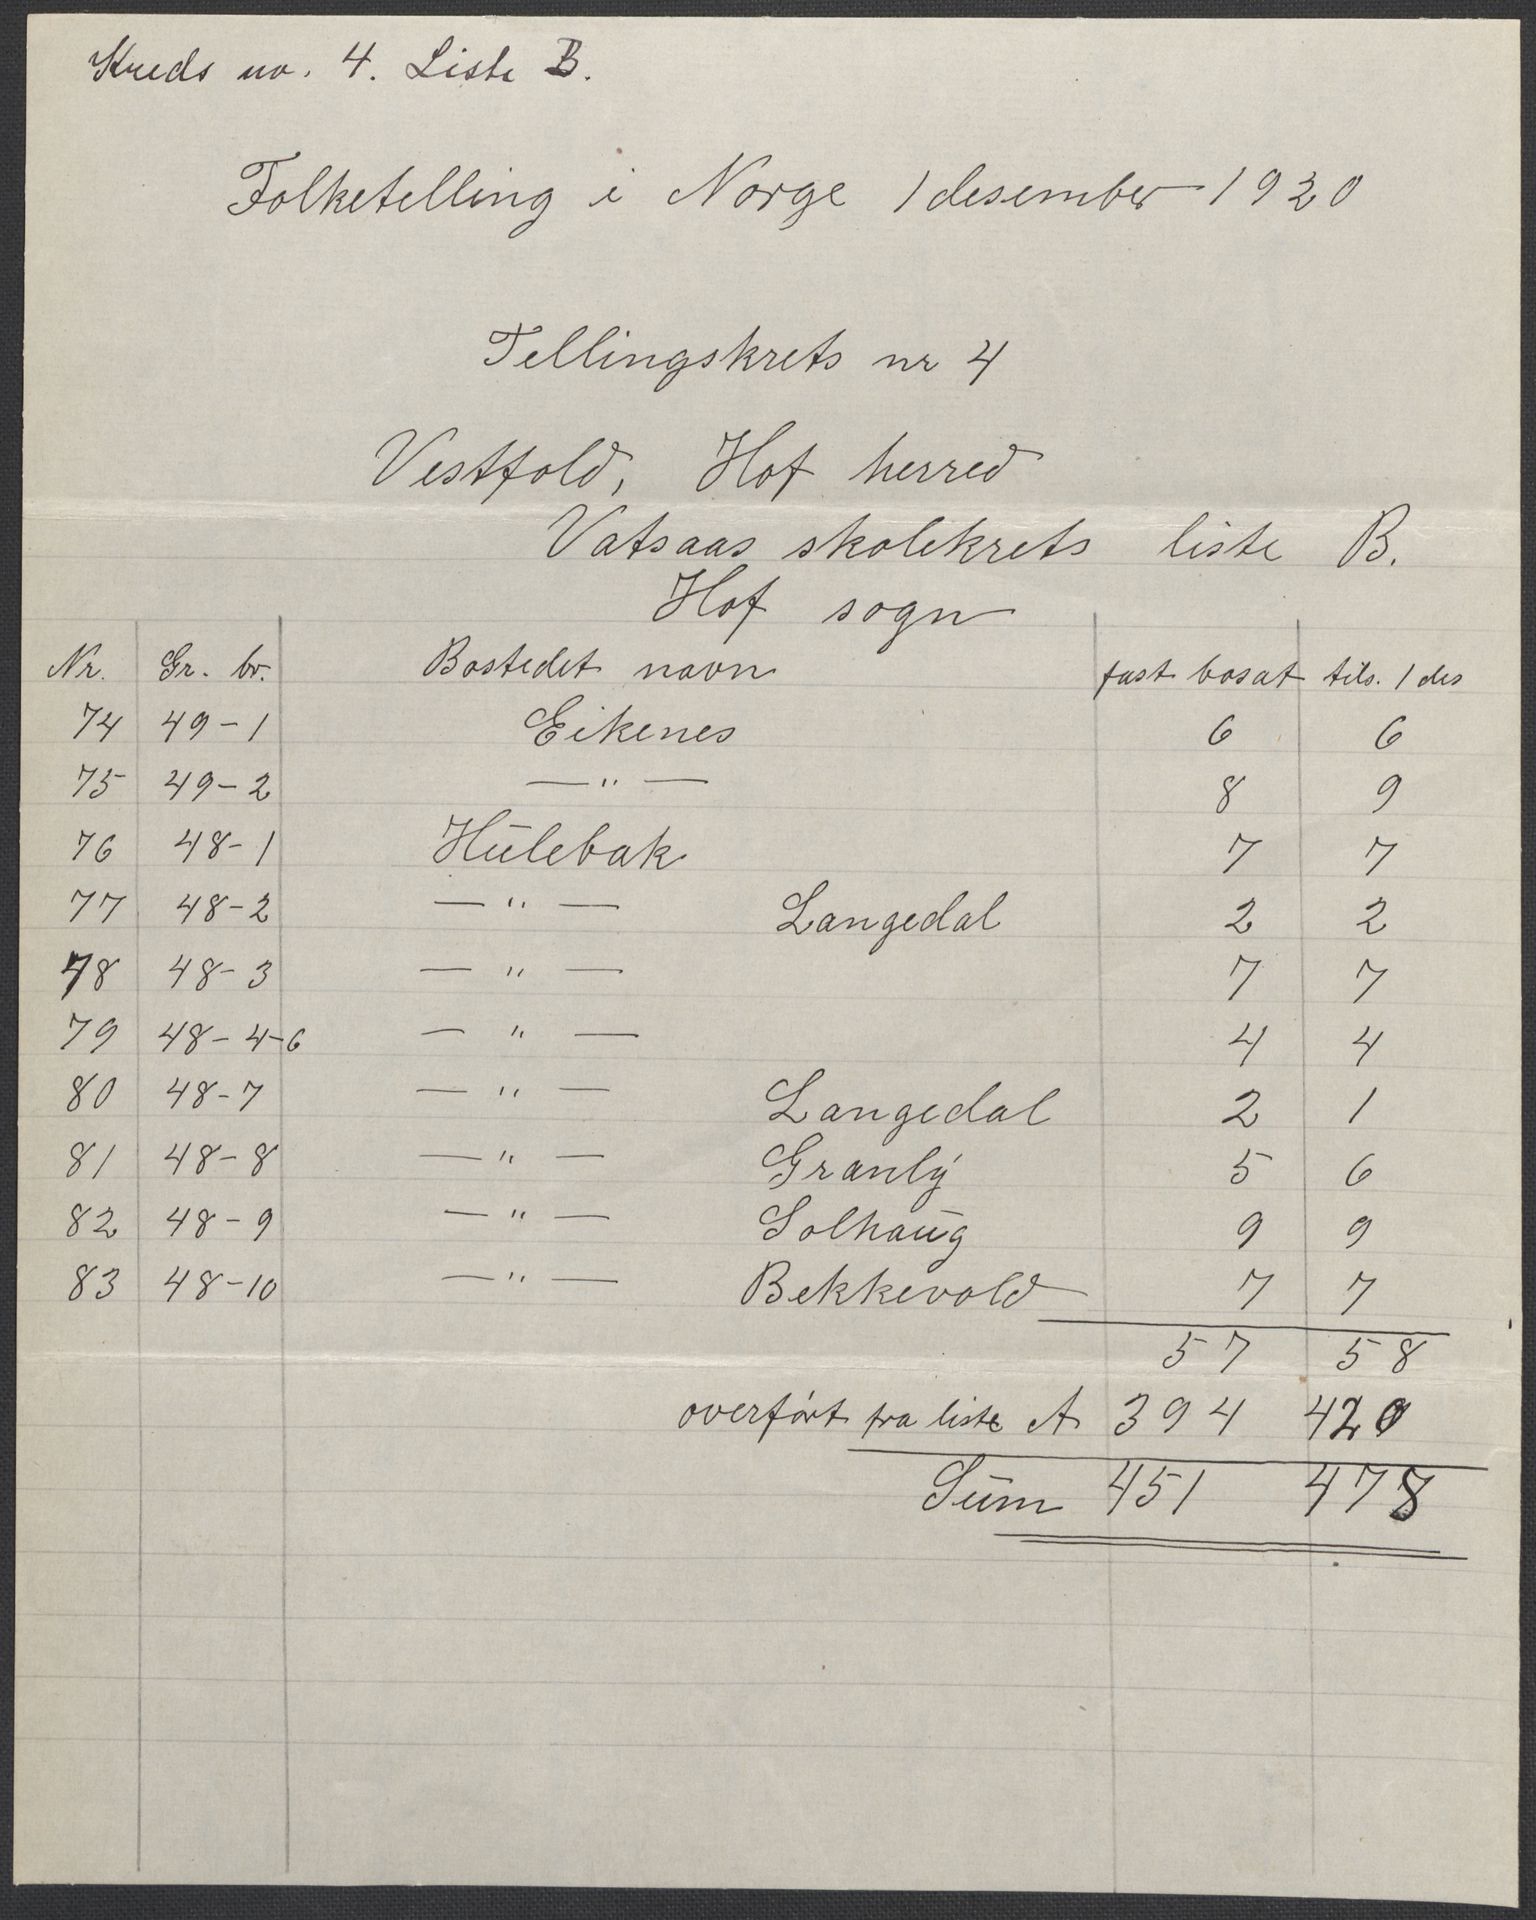 Kreds no. 4. Liste B.
Folketelling i Norge 1 desember 1920
Tellingskrets nr 4
Vestfold, Hof herred
Vatsaas skolekrets liste B.
Hof sogn
Nr. Gr. br. Bostedet navn fast bosat tils. 1 des
74 49-1 Eikenes 6 6
75 49-2 —"— 8 9
76 48-1 Hülebak 7 7
77 48-2 —"— Langedal 2 2
78 48-3 —"— 7 7
79 48-4-6 —"— 4 4
80 48-7 —"— Langedal 2 1
81 48-8 —"— Granly 5 6
82 48-9 —"— Solhaüg 9 9
83 48-10 —"— Bekkevold 7 7
57 58
overført fra liste A 394 420
Süm 451 478